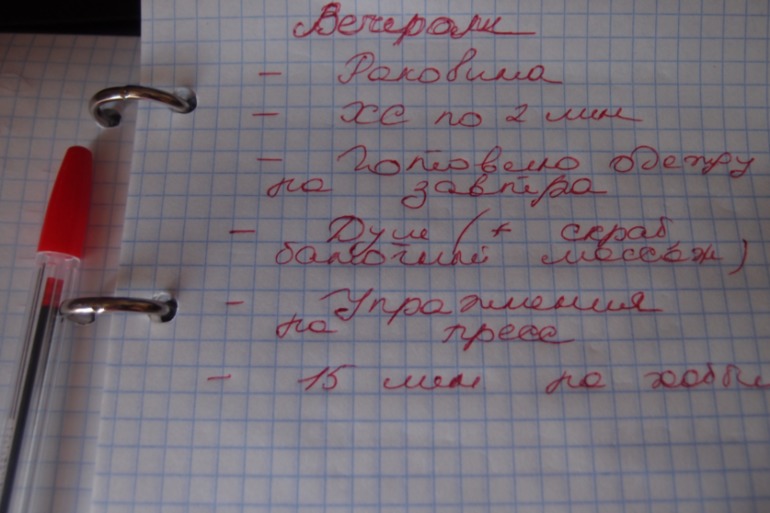 Вечером
- Раковина
- ХС по 2 мин
- Готовлю одежду
на завтра
- Душ (+ скраб
баночный массаж)
- Упражнения
на пресс
- 15 мин на хобби